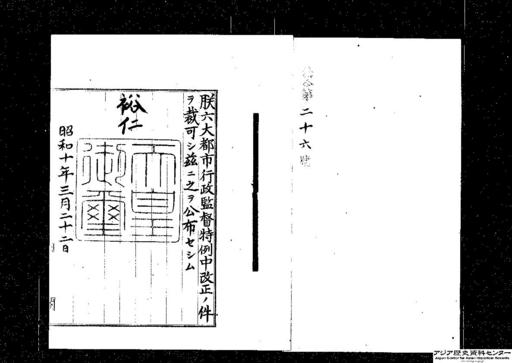 勅令第二十六號
朕六大都市行政監督特例中改正ノ件
ヲ裁可シ茲ニ之ヲ公布セシム
裕仁
天皇御璽
昭和十年三月二十二日
アジア歴史資料センター
Japan Center for Asian Historical Records